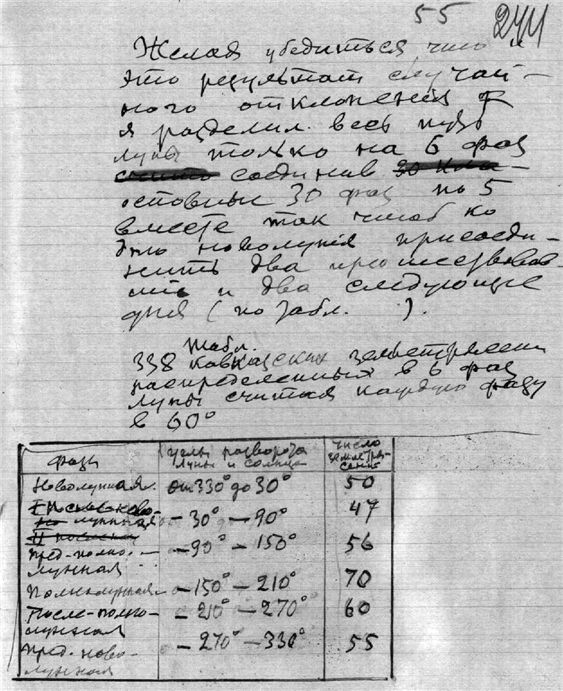 55 244
Желая убедиться что и
это результат случай-
ного отклонения
я разделил весь
луны только на 6 фаз
соединив
остовные 30 фаз по 5
вместе так чтоб ко
дню новолуния присоеди-
нить два предшествовав-
ших и два следующие
дня (по табл. ).
Табл.
338 кавказских землетрясен
распределенных в 6 фаз
луны считая каждую фазу
в 60°
фазы углы разворота число
луны и солнца землетря-
сений
Новолунная. от 330° до 30° 50
После-ново-
лунная — 30° — 90° 47
Пред-полно- — 90° — 150° 56
лунная
Полнолунная — 150° — 210° 70
После-полно- — 210° — 270° 60
лунная
Пред. ново- — 270° — 330° 55
лунная